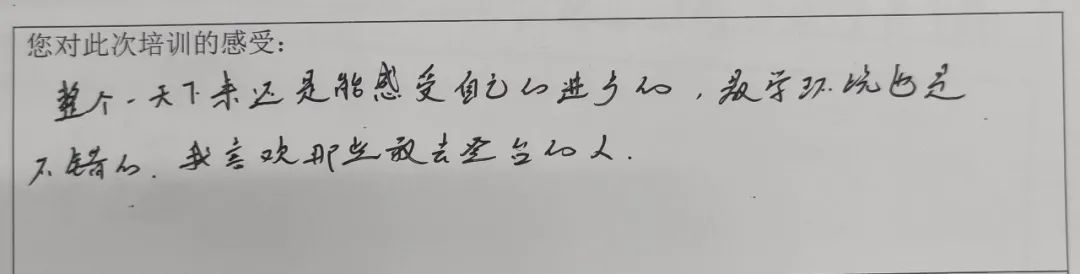 您对此次培训的感受：
整个一天下来还是能感受自己的进步的，教学环境也是
不错的．我喜欢那些敢去登台的人．